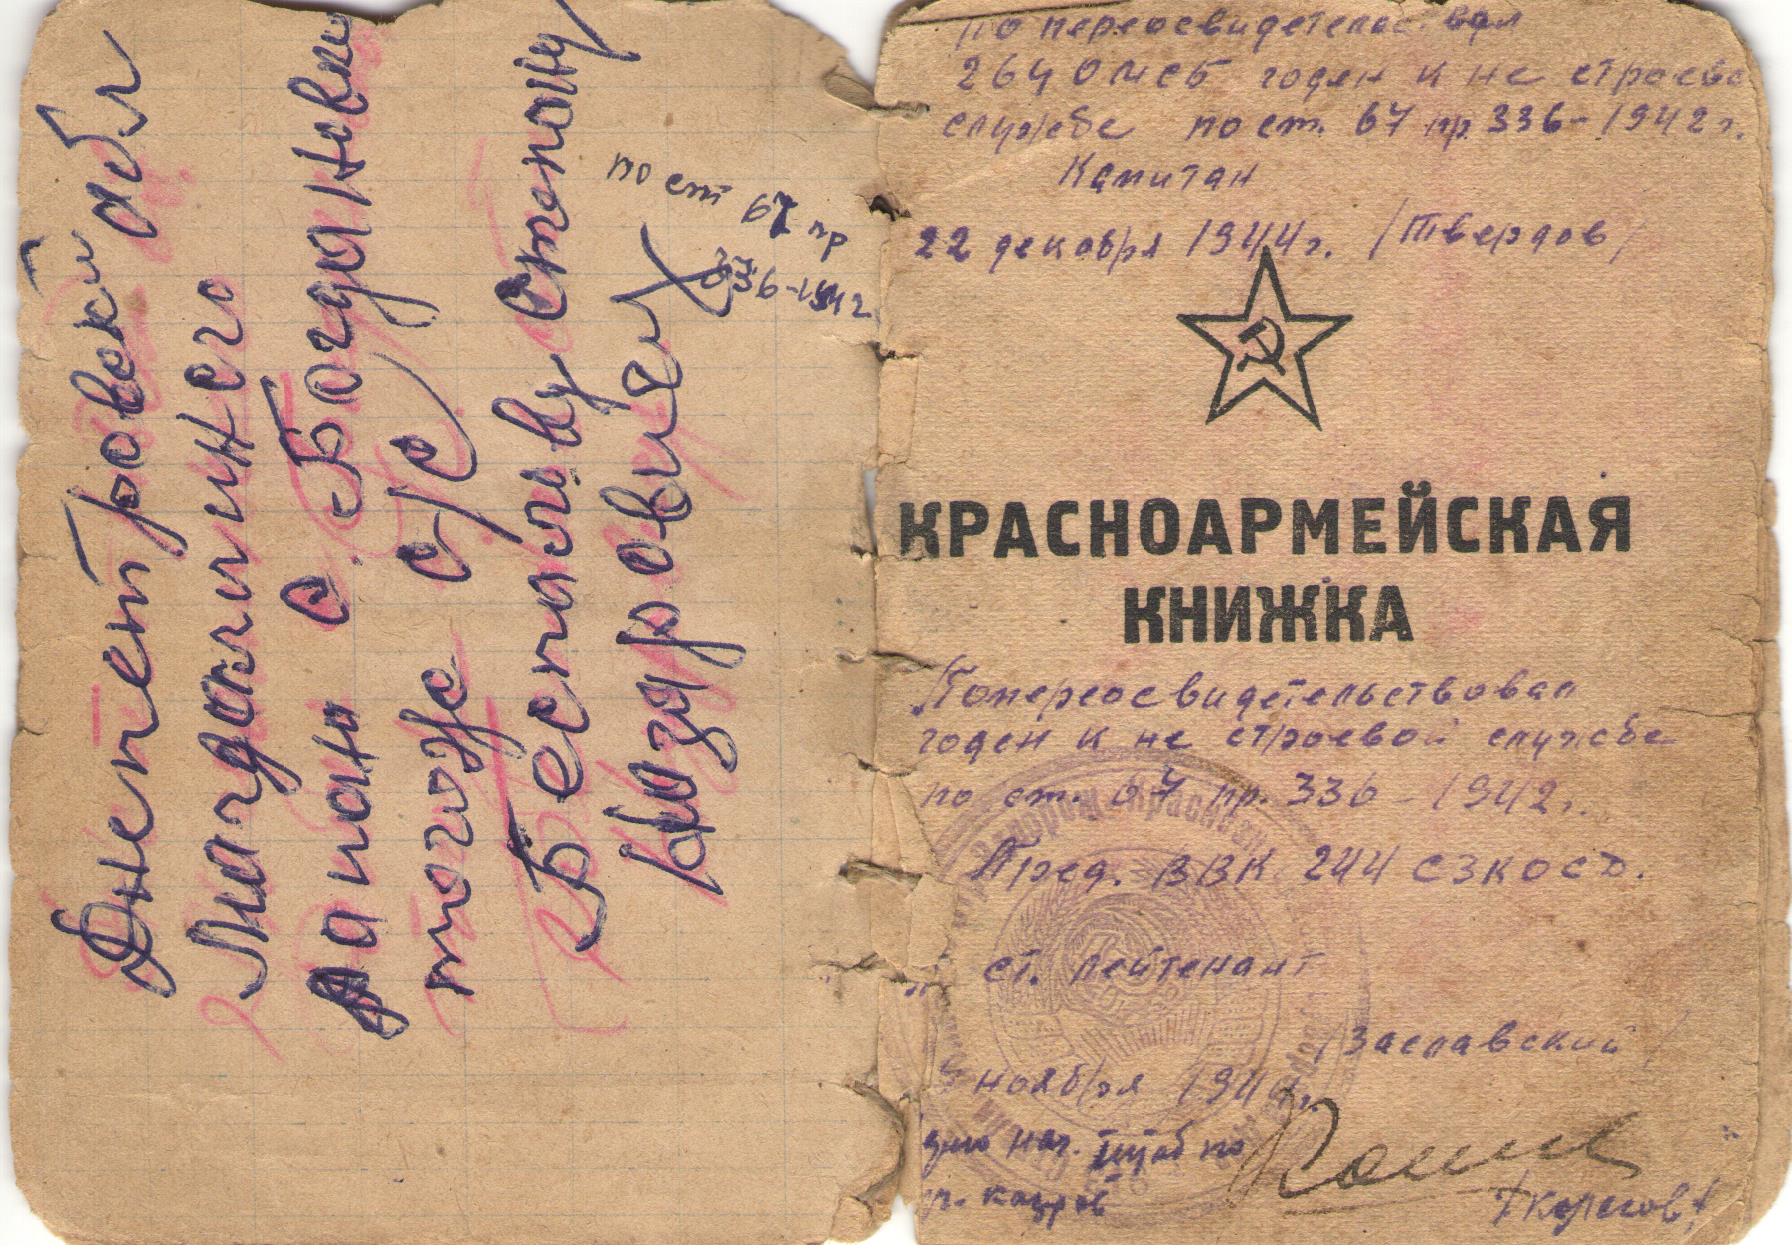 Днепетровский обл
Магдалинского
района с. Богдановка
тогоже с/с
Бесчасьву Степону
Назаровичу
по ст 67 пр
336-1942
По переосвидетельствовал
264 ОМСБ годен к не строево
службе по ст. 67 пр 336-1942 г.
Капитан
22 декабря 1944 г. /Твердов/
КРАСНОАРМЕЙСКАЯ
КНИЖКА
Попереосвидетельствовал
годен к не строевой службе
по ст. 67 пр. 336-1942 г.
Пред. ВВК 244 СЗКОСД.
ст. лейтенант
/Заславский/
ноября 1944 г.
нач. штаб по
кадров